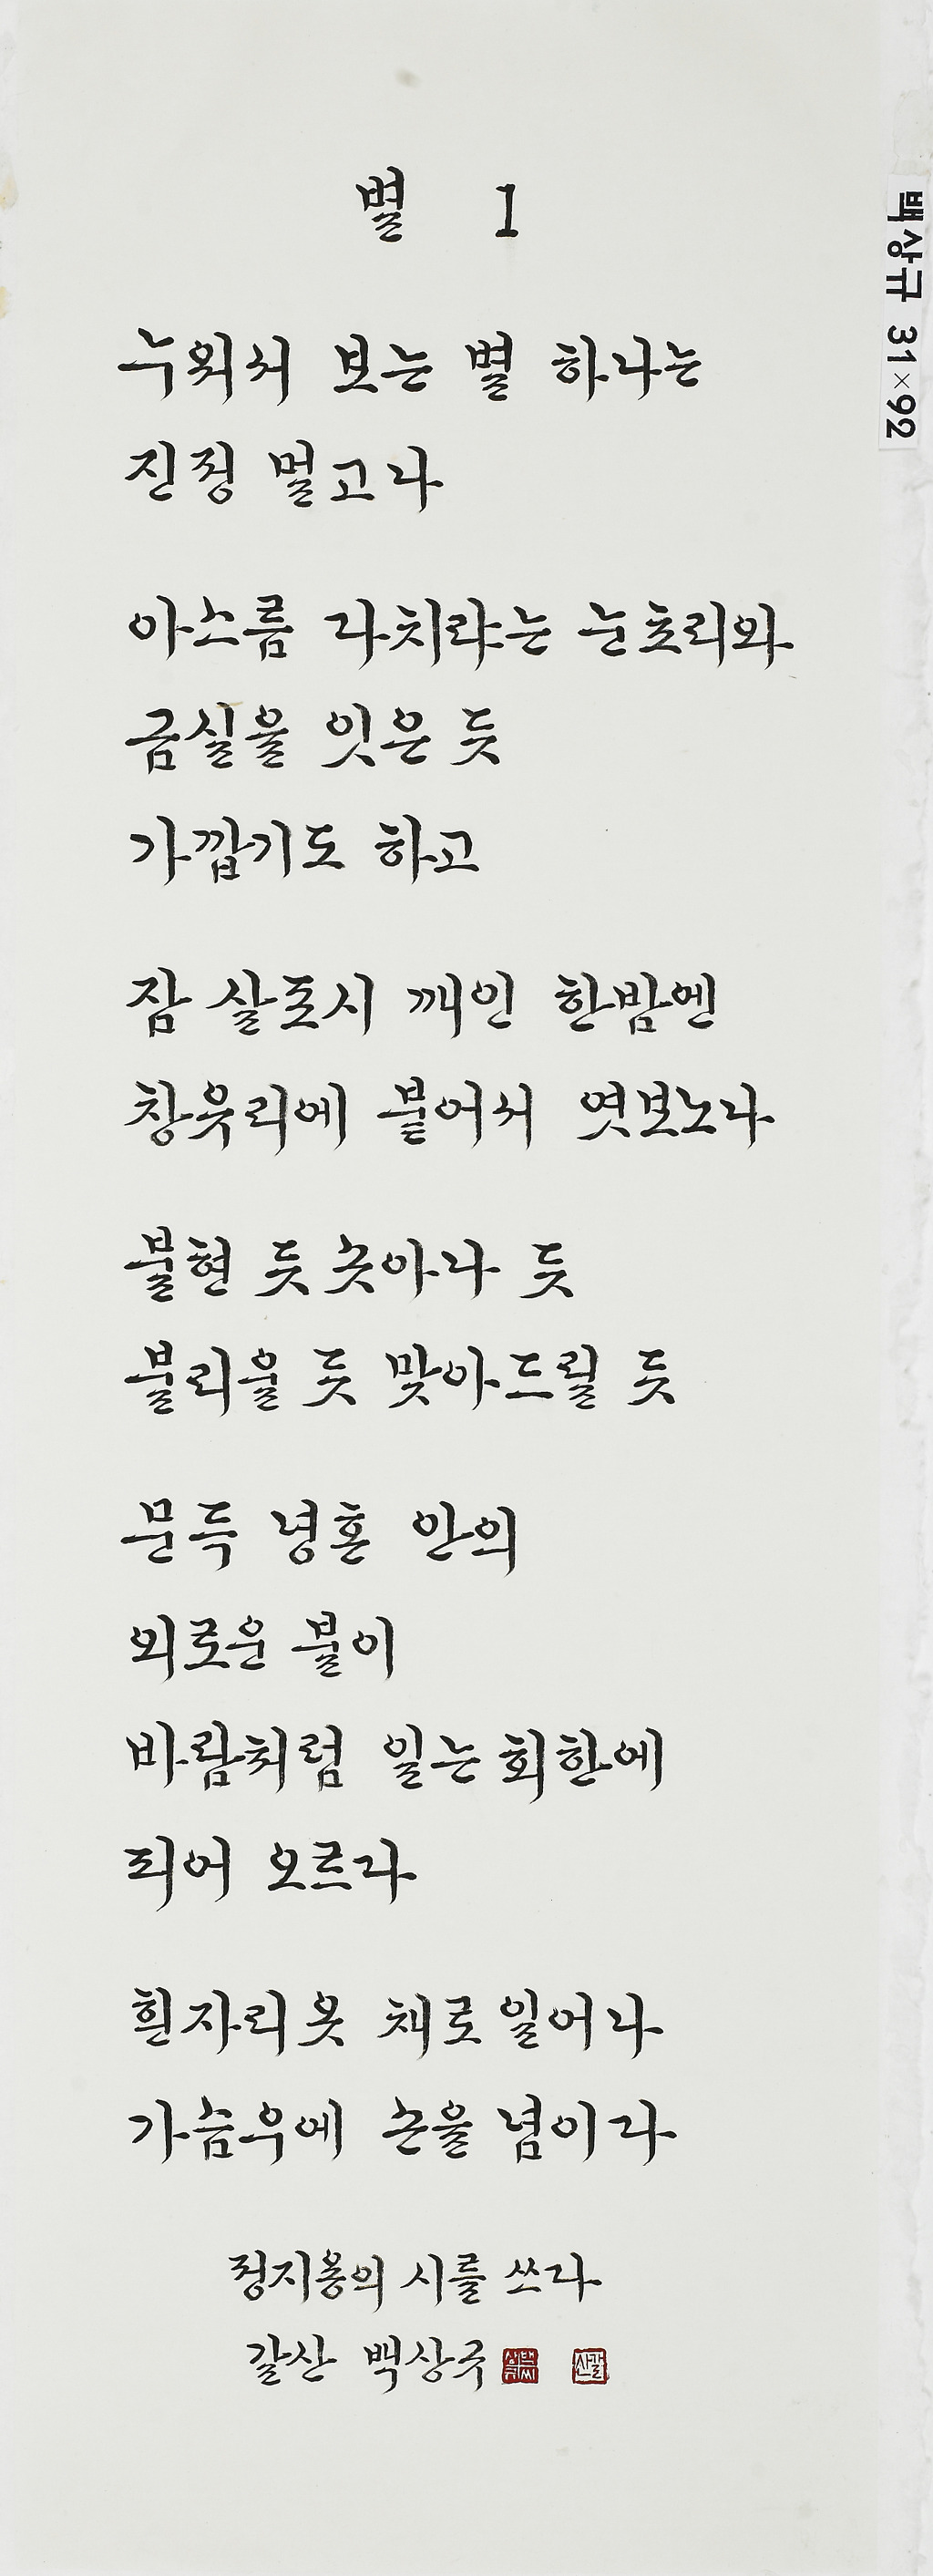 별 1
누워서 보는 별 하나는
진정 멀고나
아스름 다치랴는 눈초리와
금실을 잇은 듯
가깝기도 하고
잠 살포시 깨인 한밤엔
창유리에 붙어서 엿보노나
불현 듯 솟아나 듯
불리울 듯 맞아드릴 듯
문득 령혼 안의
외로운 불이
바람처럼 일는 회한에
피어 오르다
흰자리옷 채로 일어나
가슴우에 손을 념이다
정지용의 시를 쓰다
갈산 백상규
갈산
백상규 31×92